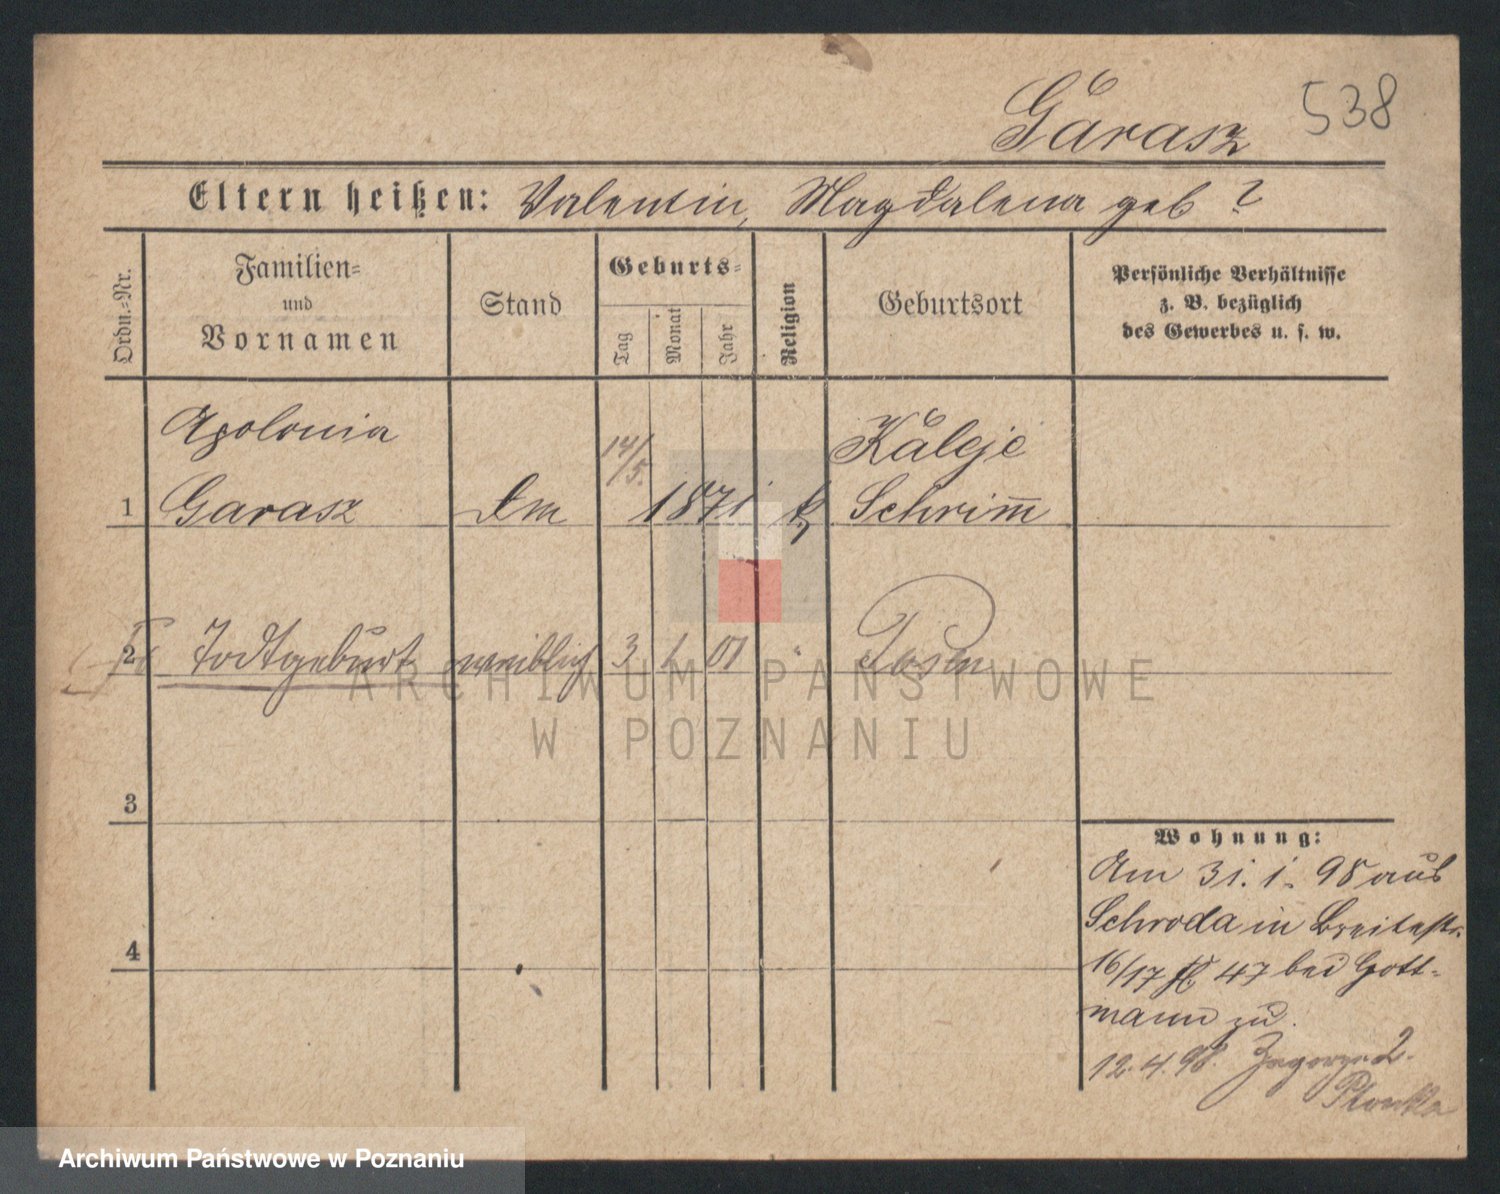 538
Garasz
Eltern heißen: Valentin, Magdalena geb ?
Ordn.-Nr.
Familien-
und
Vornamen
Stand
Geburts-
Tag
Monat
Jahr
Religion
Geburtsort
Persönliche Verhältnisse
z. B. bezüglich
des Gewerbes u. s. w.
Apolonia
14/5.
Kaleje
1 Garasz 1871 k Schrim̅
2 Todtgeburt weiblich 3 1 01 Posen
ARCHIWUM PAŃSTWOWE
W POZNANIU
3
4
Wohnung:
Am 31. 1. 98 aus
Schroda in Breitestr.
16/17 47 bei Gott-
mann zu.
12.4.98. Zagorze 2.
Plonka
Archiwum Państwowe w Poznaniu